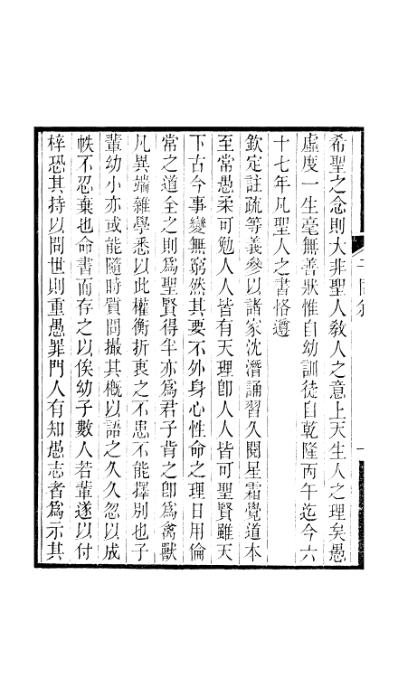 希聖之念則大非聖人敎人之意上天生人之理矣愚
虛度一生毫無善狀惟自幼訓徒自乾隆丙午迄今六
十七年凡聖人之書恪遵
欽定註疏等義參以諸家沈潛誦習久閱星霜覺道本
至常愚柔可勉人人皆有天理卽人人皆可聖賢雖天
下古今事變無窮然其要不外身心性命之理日用倫
常之道全之則爲聖賢得半亦爲君子背之卽爲禽獸
凡異端雜學悉以此權衡折衷之不患不能擇別也子
輩幼小亦或能隨時質問撮其槪以語之久久忽以成
帙不忍棄也命書而存之以俟幼子數人若輩遂以付
梓恐其持以問世則重愚罪門人有知愚志者爲示其